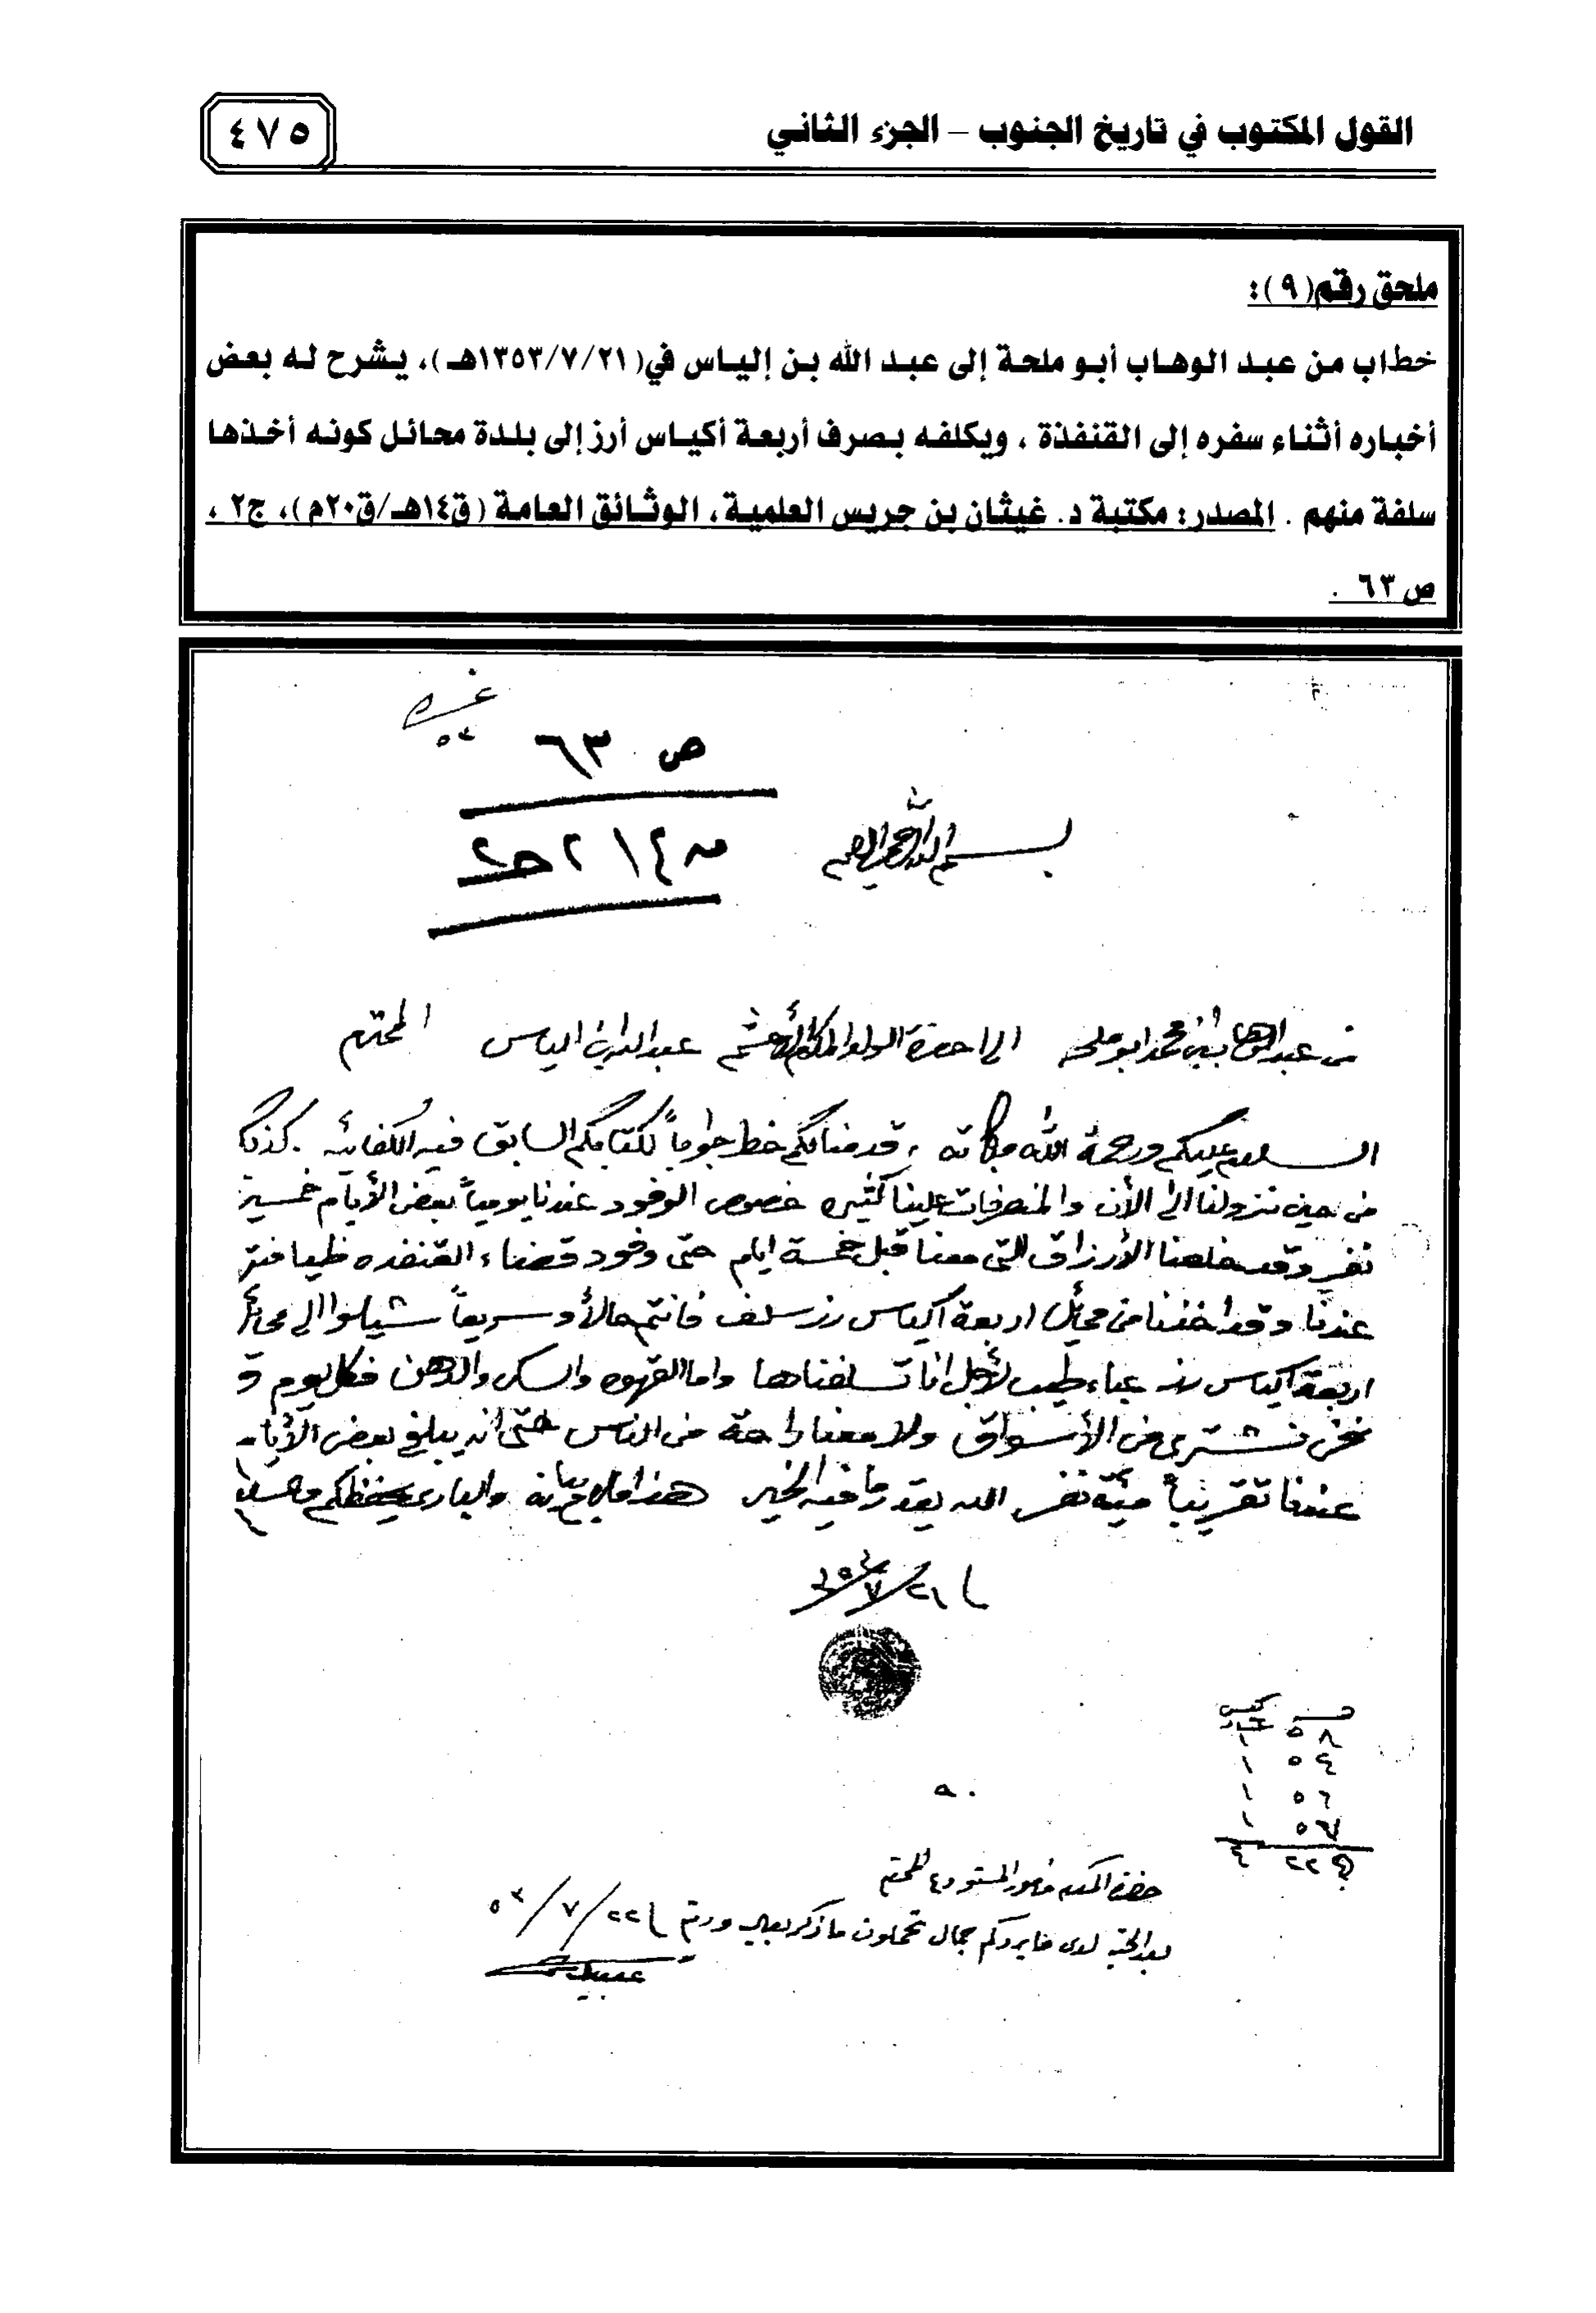 القول المكتوب في تاريخ الجنوب – الجزء الثاني
٤٧٥
ملحق رقم(٩):
خطاب من عبد الوهاب أبو ملحة إلى عبد الله بن إلياس في(١٣٥٣/٧/٢١هـ)، يشرح له بعض
أخباره أثناء سفره إلى القنفذة ، ويكلفه بصرف أربعة أكياس أرز إلى بلدة محائل كونه أخذها
سلفة منهم . المصدر: مكتبة د. غيثان بن جريس العلمية، الوثائق العامة (ق١٤هـ/ق٢٠م)، ج٢ ،
ص ٦٣ .
ص ٦٣
بسم الله الرحمن الرحيم
من عبدالوهاب بن محمد ابو ملحه الى حضرة الولد المكرم الأحشم عبدالله بن الياس المحترم
السلام عليكم ورحمة الله وبركاته ، قدمنا لكم خط جواباً لكتابكم السابق فيه الكفائيه . كذلك
من حين نزولنا الى الأن والمنصرفات علينا كثيره خصوص الوفود عندنا يومياً بعض الأيام خمسين
نفر وقد خلصنا الأرزاق التى معنا قبل خمسة ايام حتى وفود قضاء القنفده
عندنا وقد اخذنا من محائل اربعة اكياس رز سلف فانتم حالاً وسريعاً شيلوا الى محائل
اربعة اكياس رز طيب لأجل انا تسلفناها واما القهوه والسكر والدهن فكل يوم و
نحن نشترى من الأسواق ولا معنا راحة من الناس حتى انه يبلغ بعض الأيام
عندنا تقريباً مئة نفر الله يقدر ما فيه الخير هذا ما لزم بيانه والبارى يحفظكم والسلام
٢١/٧/
كيس
٥٨
٥٤
٥٦
٤
حضرة المكرم مأمور المستودع المحترم
بعد التحيه لدى ما يردكم جمال تحملون ما ذكر ٢٢/٧/٥٣